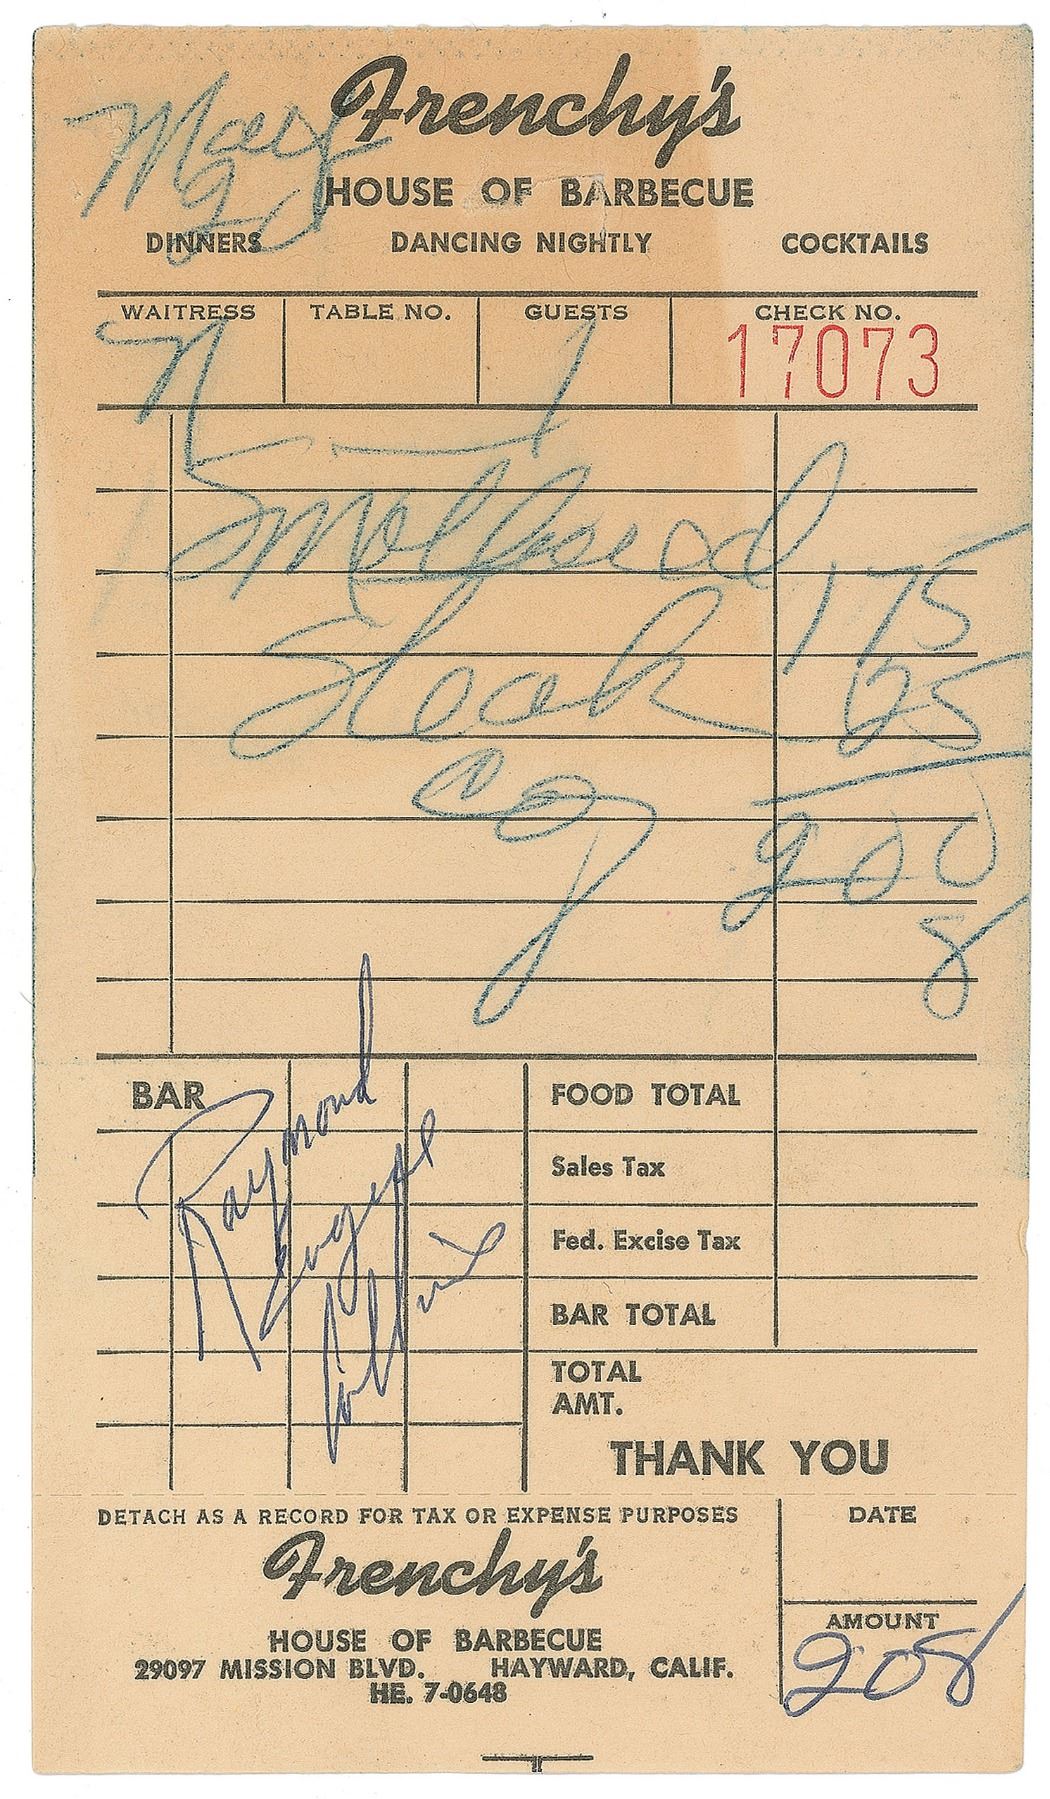 Frenchy's
HOUSE OF BARBECUE
DINNERS DANCING NIGHTLY COCKTAILS
WAITRESS TABLE NO. GUESTS CHECK NO.
17073
1
175
Steak 25
200
8
BAR
Raymond
Eugene
FOOD TOTAL
Sales Tax
Fed. Excise Tax
BAR TOTAL
TOTAL
AMT.
THANK YOU
DETACH AS A RECORD FOR TAX OR EXPENSE PURPOSES
Frenchy's
HOUSE OF BARBECUE
29097 MISSION BLVD. HAYWARD, CALIF.
HE. 7-0648
DATE
AMOUNT
208